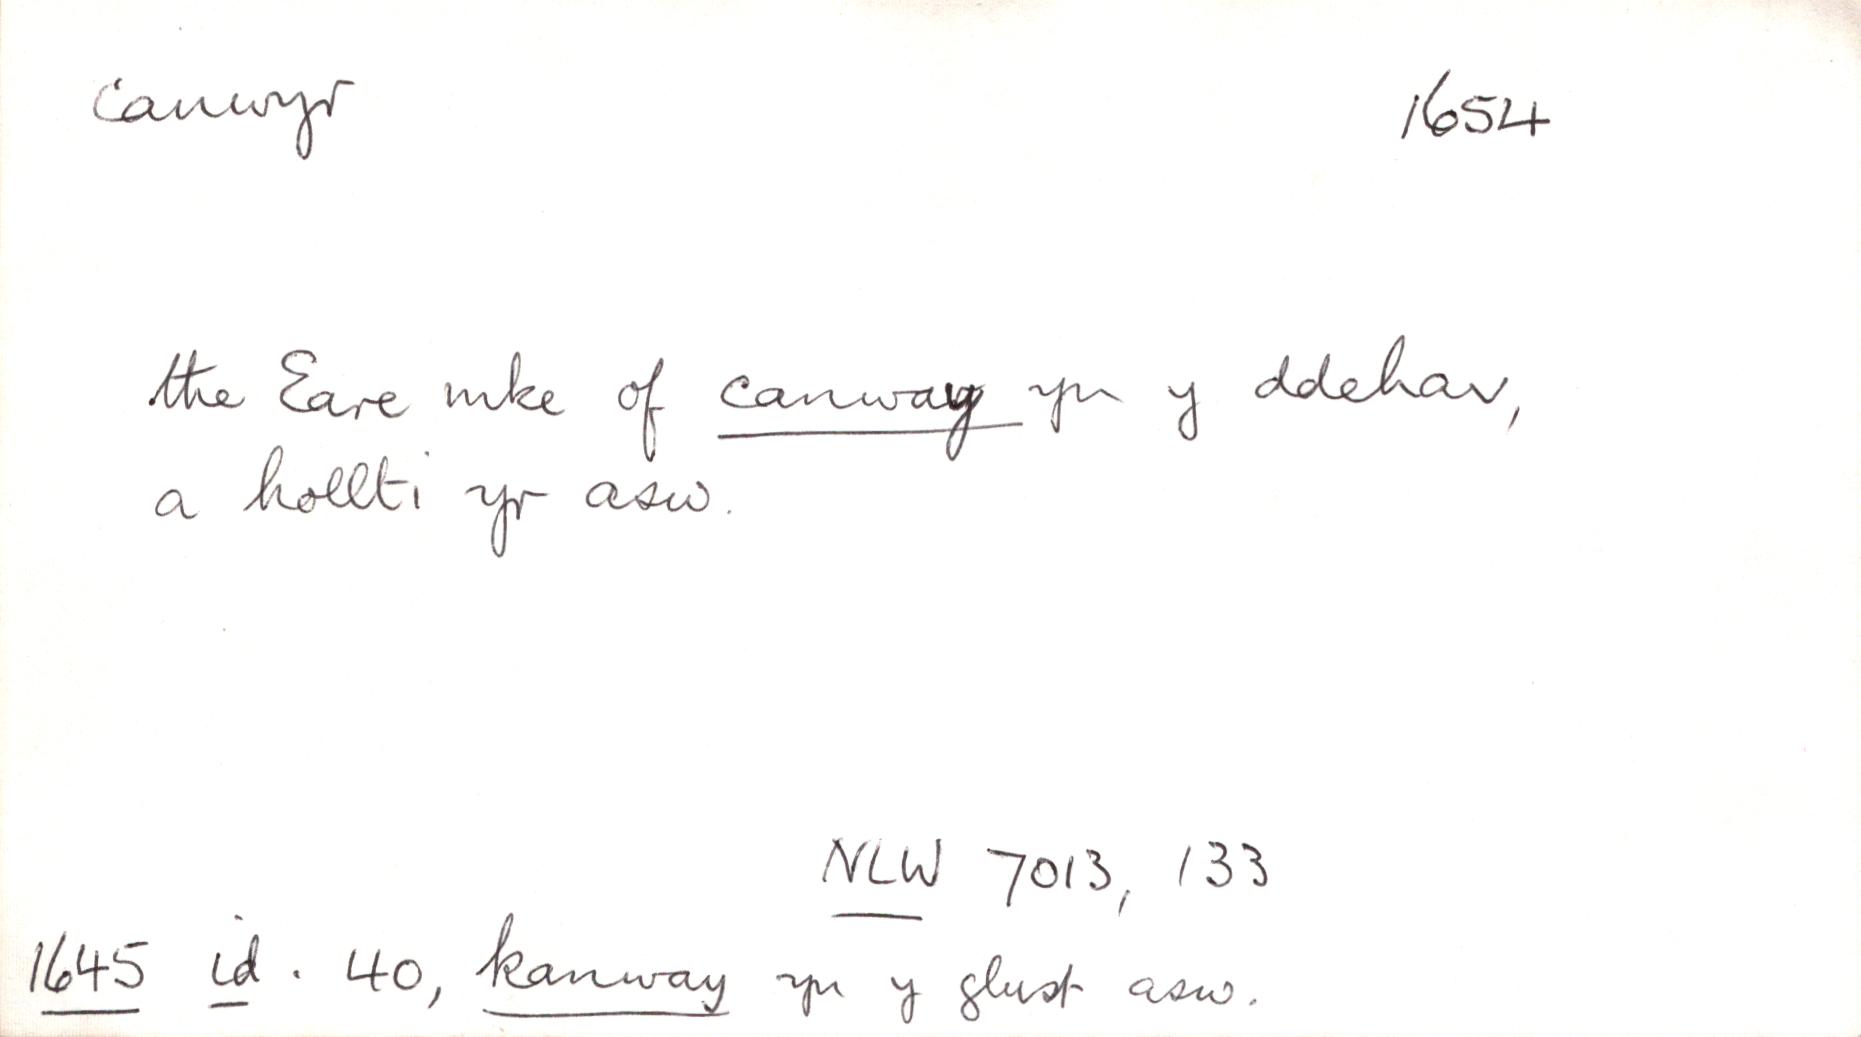 canwyr 1654
the Eare mke of canway yn y ddehav,
a hollti yr asw.
NLW 7013, 133
1645 id. 40, kanway yn y glust asw.